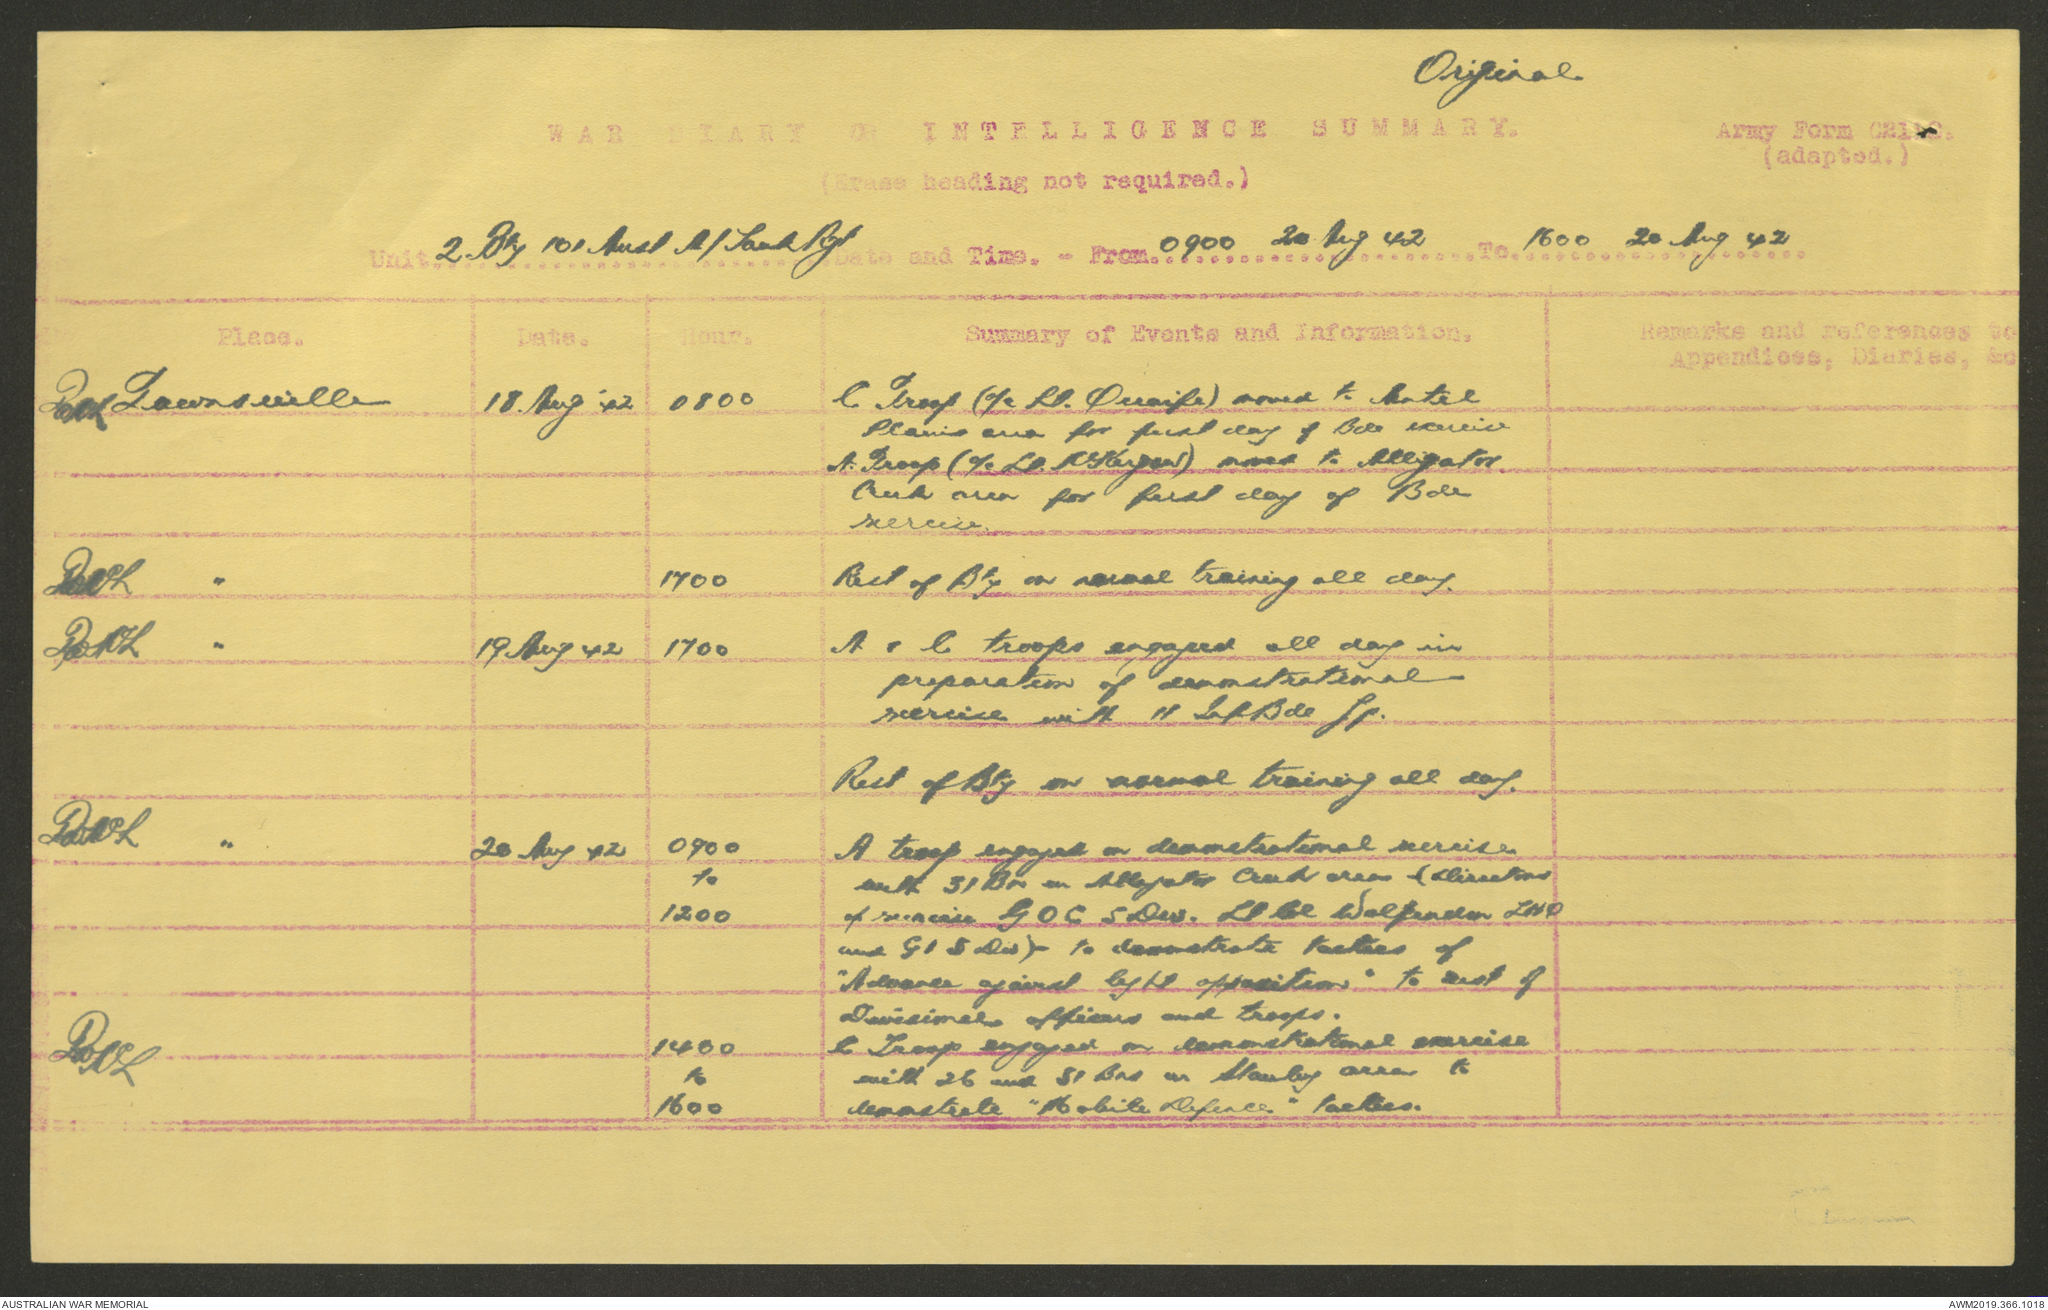 Original
WAR DIARY OR INTELLIGENCE SUMMARY.
Army Form C2118.
(adapted.)
(Erase heading not required.)
Unit 2 Bty 101 Aust A/Tank Rgt Date and Time. - From 0900 20 Aug 42 To 1600 20 Aug 42
Place. Date. Hour. Summary of Events and Information. Remarks and references to
Appendices, Diaries, &c
Townsville 18 Aug 42 0800 C Troop (o/c Lt. Quaife) moved to Antil
Plains area for first day of Bde exercise
A. Troop (o/c Lt. ) moved to Alligator
Creek area for first day of Bde
exercise.
" 1700 Rest of Bty on normal training all day.
" 19 Aug 42 1700 A & C troops engaged all day in
preparation of demonstrational
exercise with 11 Inf Bde Gp.
Rest of Bty on normal training all day.
" 20 Aug 42 0900 A troop engaged on demonstrational exercise
to with 31 Bn in Alligator Creek area (Directors
1200 of exercise GOC 5 Div. Lt Col Wolfenden LHQ
and G1 5 Div) - to demonstrate tactics of
"Advance against light opposition" to rest of
Divisional officers and troops.
1400 C Troop engaged on demonstrational exercise
to with 26 and 51 Bns in area to
1600 demonstrate "Mobile Defence" tactics.
AUSTRALIAN WAR MEMORIAL
AWM2019.366.1018